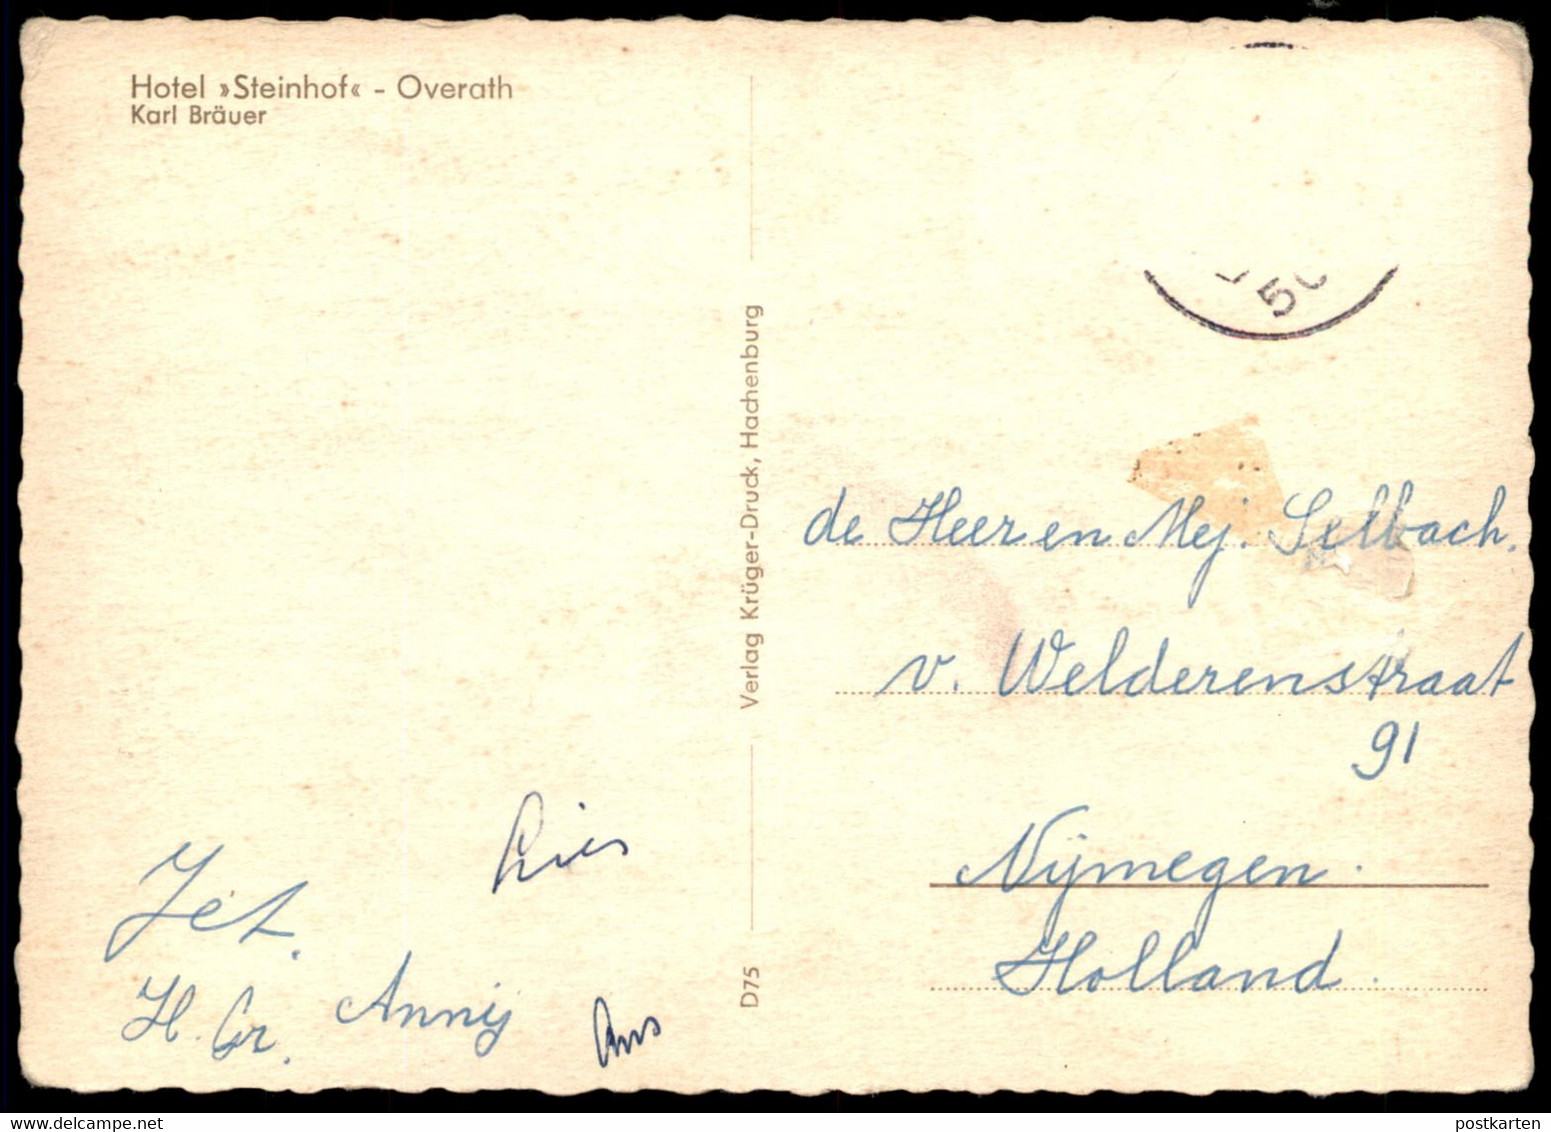 Hotel »Steinhof« - Overath
Karl Bräuer
Verlag Krüger-Druck, Hachenburg
D75
50
de Heer en Mej. Selbach.
v. Welderenstraat
91
Nijmegen.
Holland.
Lies
Jet.
H. Gr. Annij
postkarten